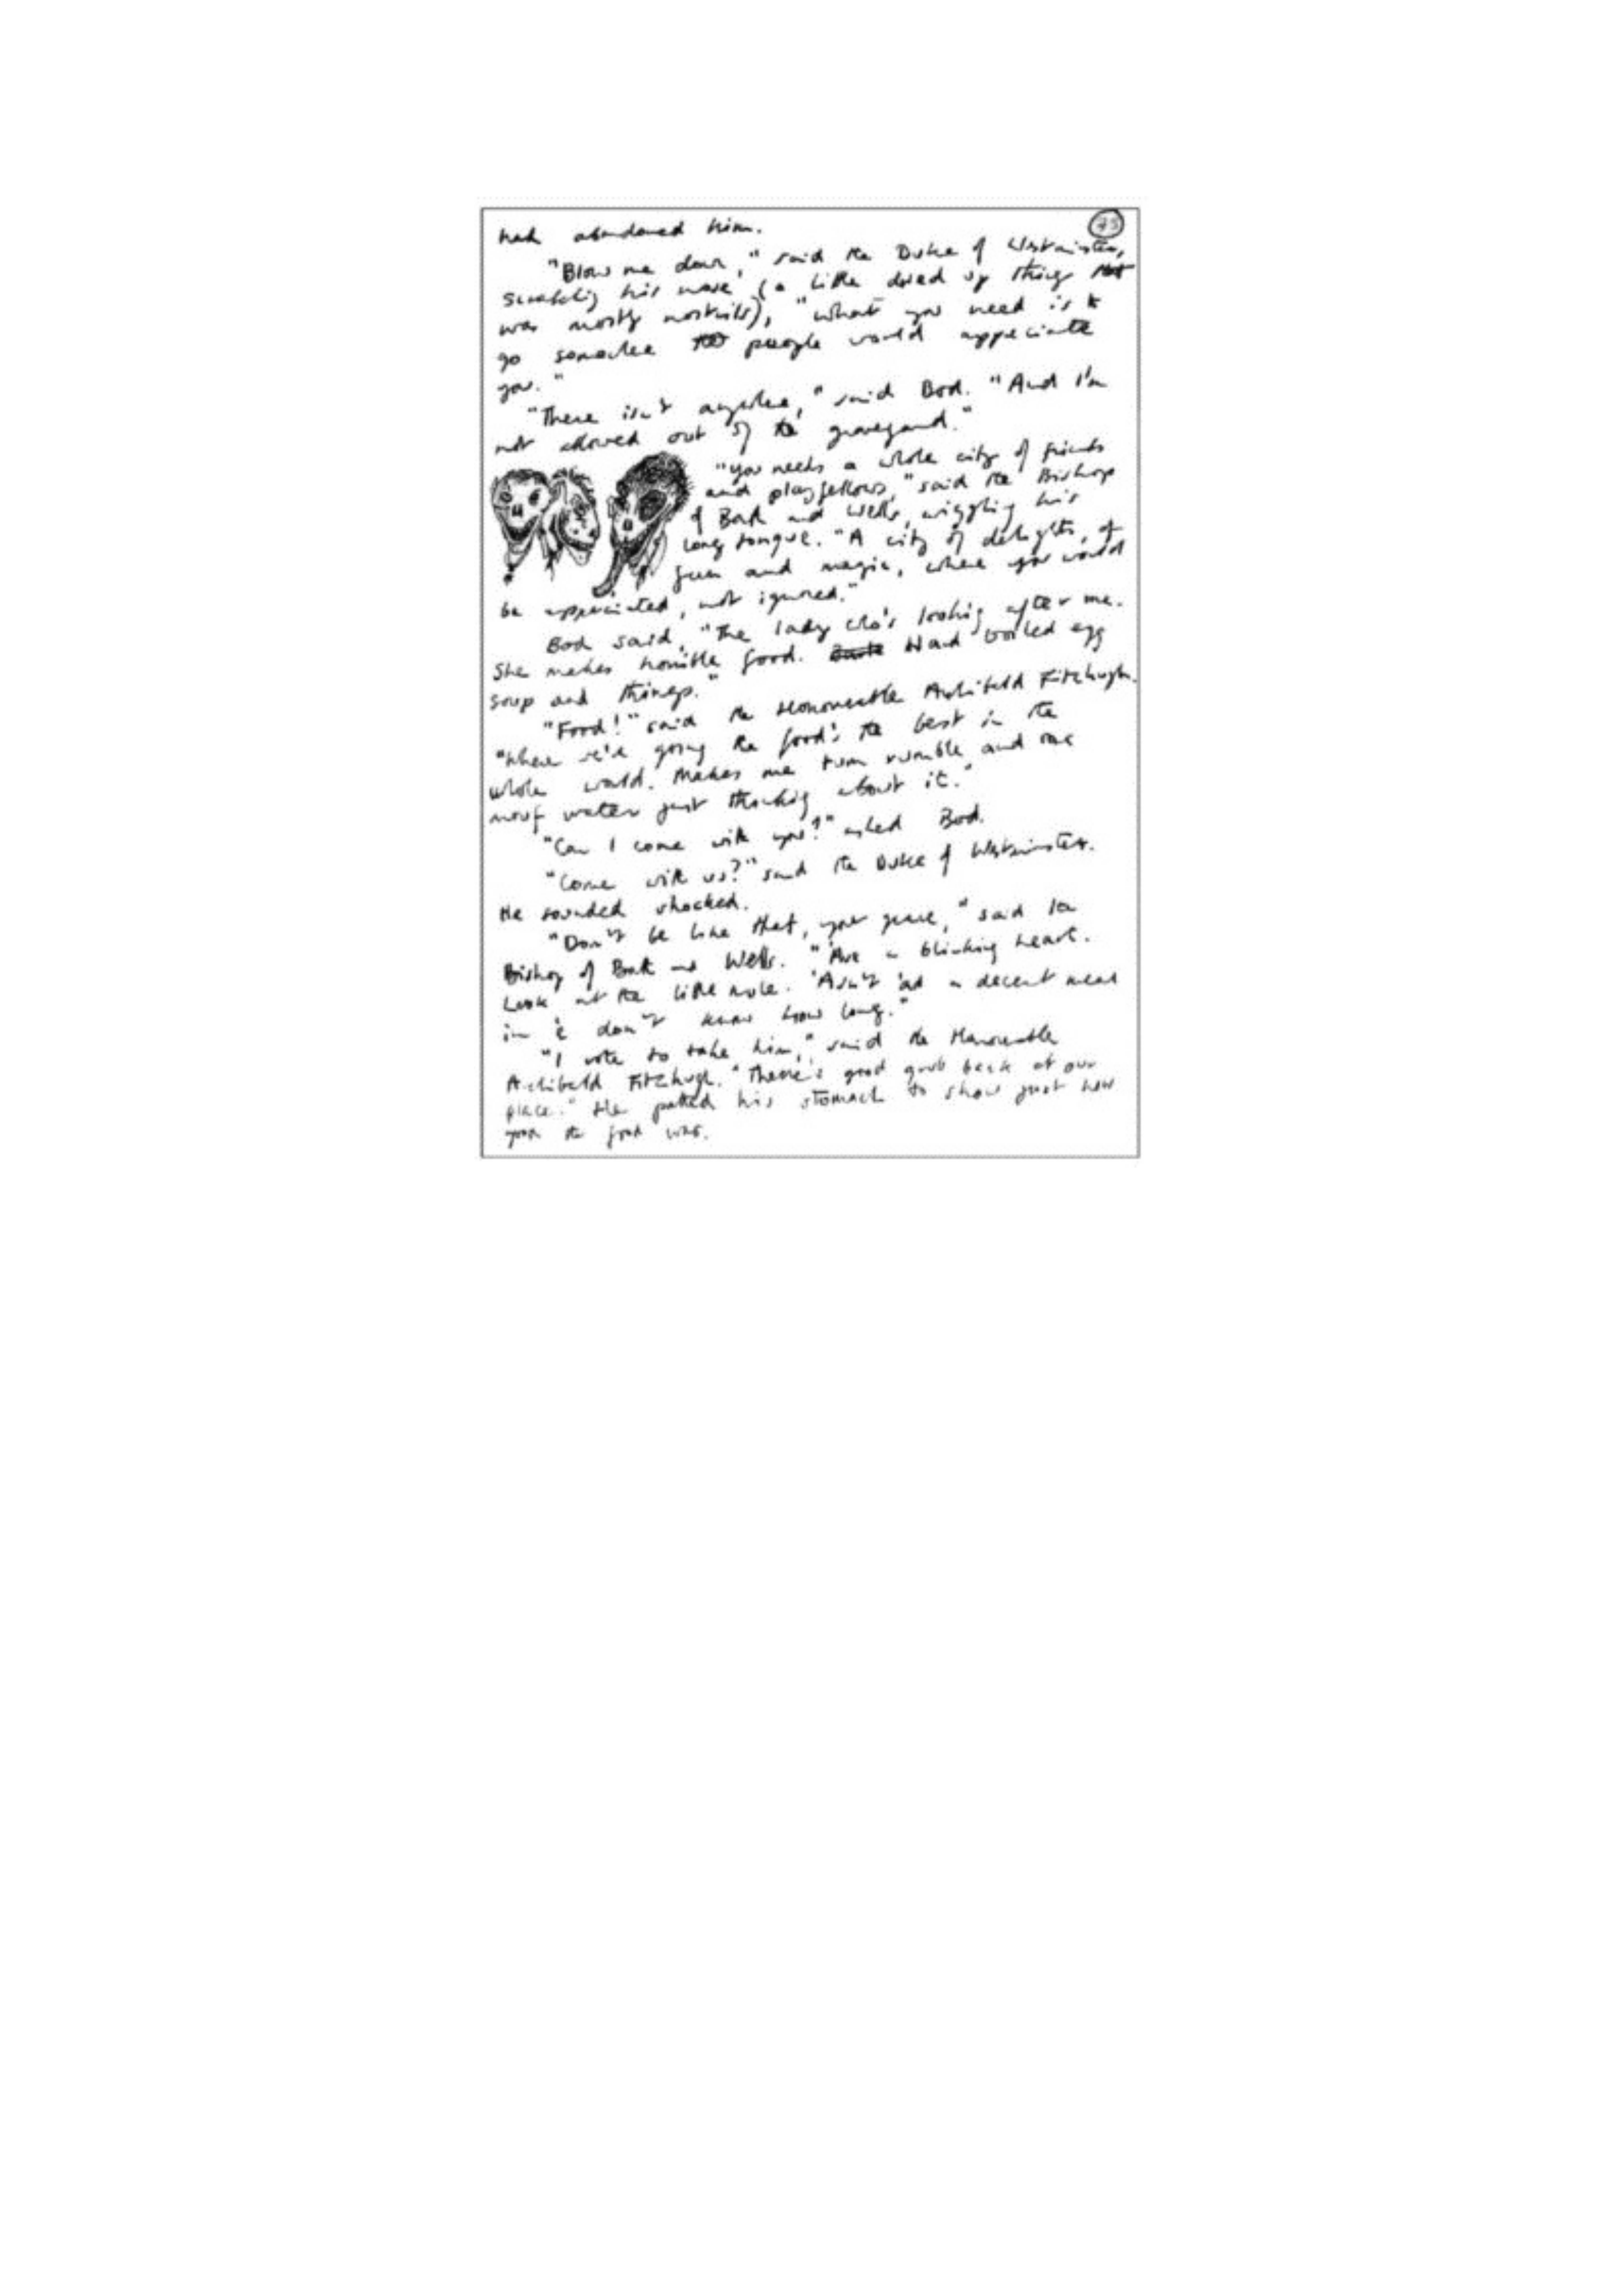 75
had abandoned him.
"Blow me down," said the Duke of Westminster,
scratching his nose (a little dried up thing that
was mostly nostrils), "what you need is to
go somewhere people would appreciate
you."
"There isn't anywhere," said Bod. "And I'm
not allowed out of the graveyard."
"You needs a whole city of friends
and playfellows," said the Bishop
of Bath and Wells, wiggling his
long tongue. "A city of delights, of
fun and magic, where you would
be appreciated, not ignored."
Bod said, "The lady who's looking after me.
She makes horrible food. Hard boiled egg
soup and things."
"Food!" said the Honourable Archibald Fitzhugh.
"Where we're going the food's the best in the
whole world. Makes me tum rumble and me
mouf water just thinking about it."
"Can I come with you?" asked Bod.
"Come with us?" said the Duke of Westminster.
He sounded shocked.
"Don't be like that, your grace," said the
Bishop of Bath and Wells. "'Ave a blinking heart.
Look at the little mite. 'Asn't 'ad a decent meal
in 'e don't know how long."
"I vote to take him," said the Honourable
Archibald Fitzhugh. "There's good grub back at our
place." He patted his stomach to show just how
good the food was.